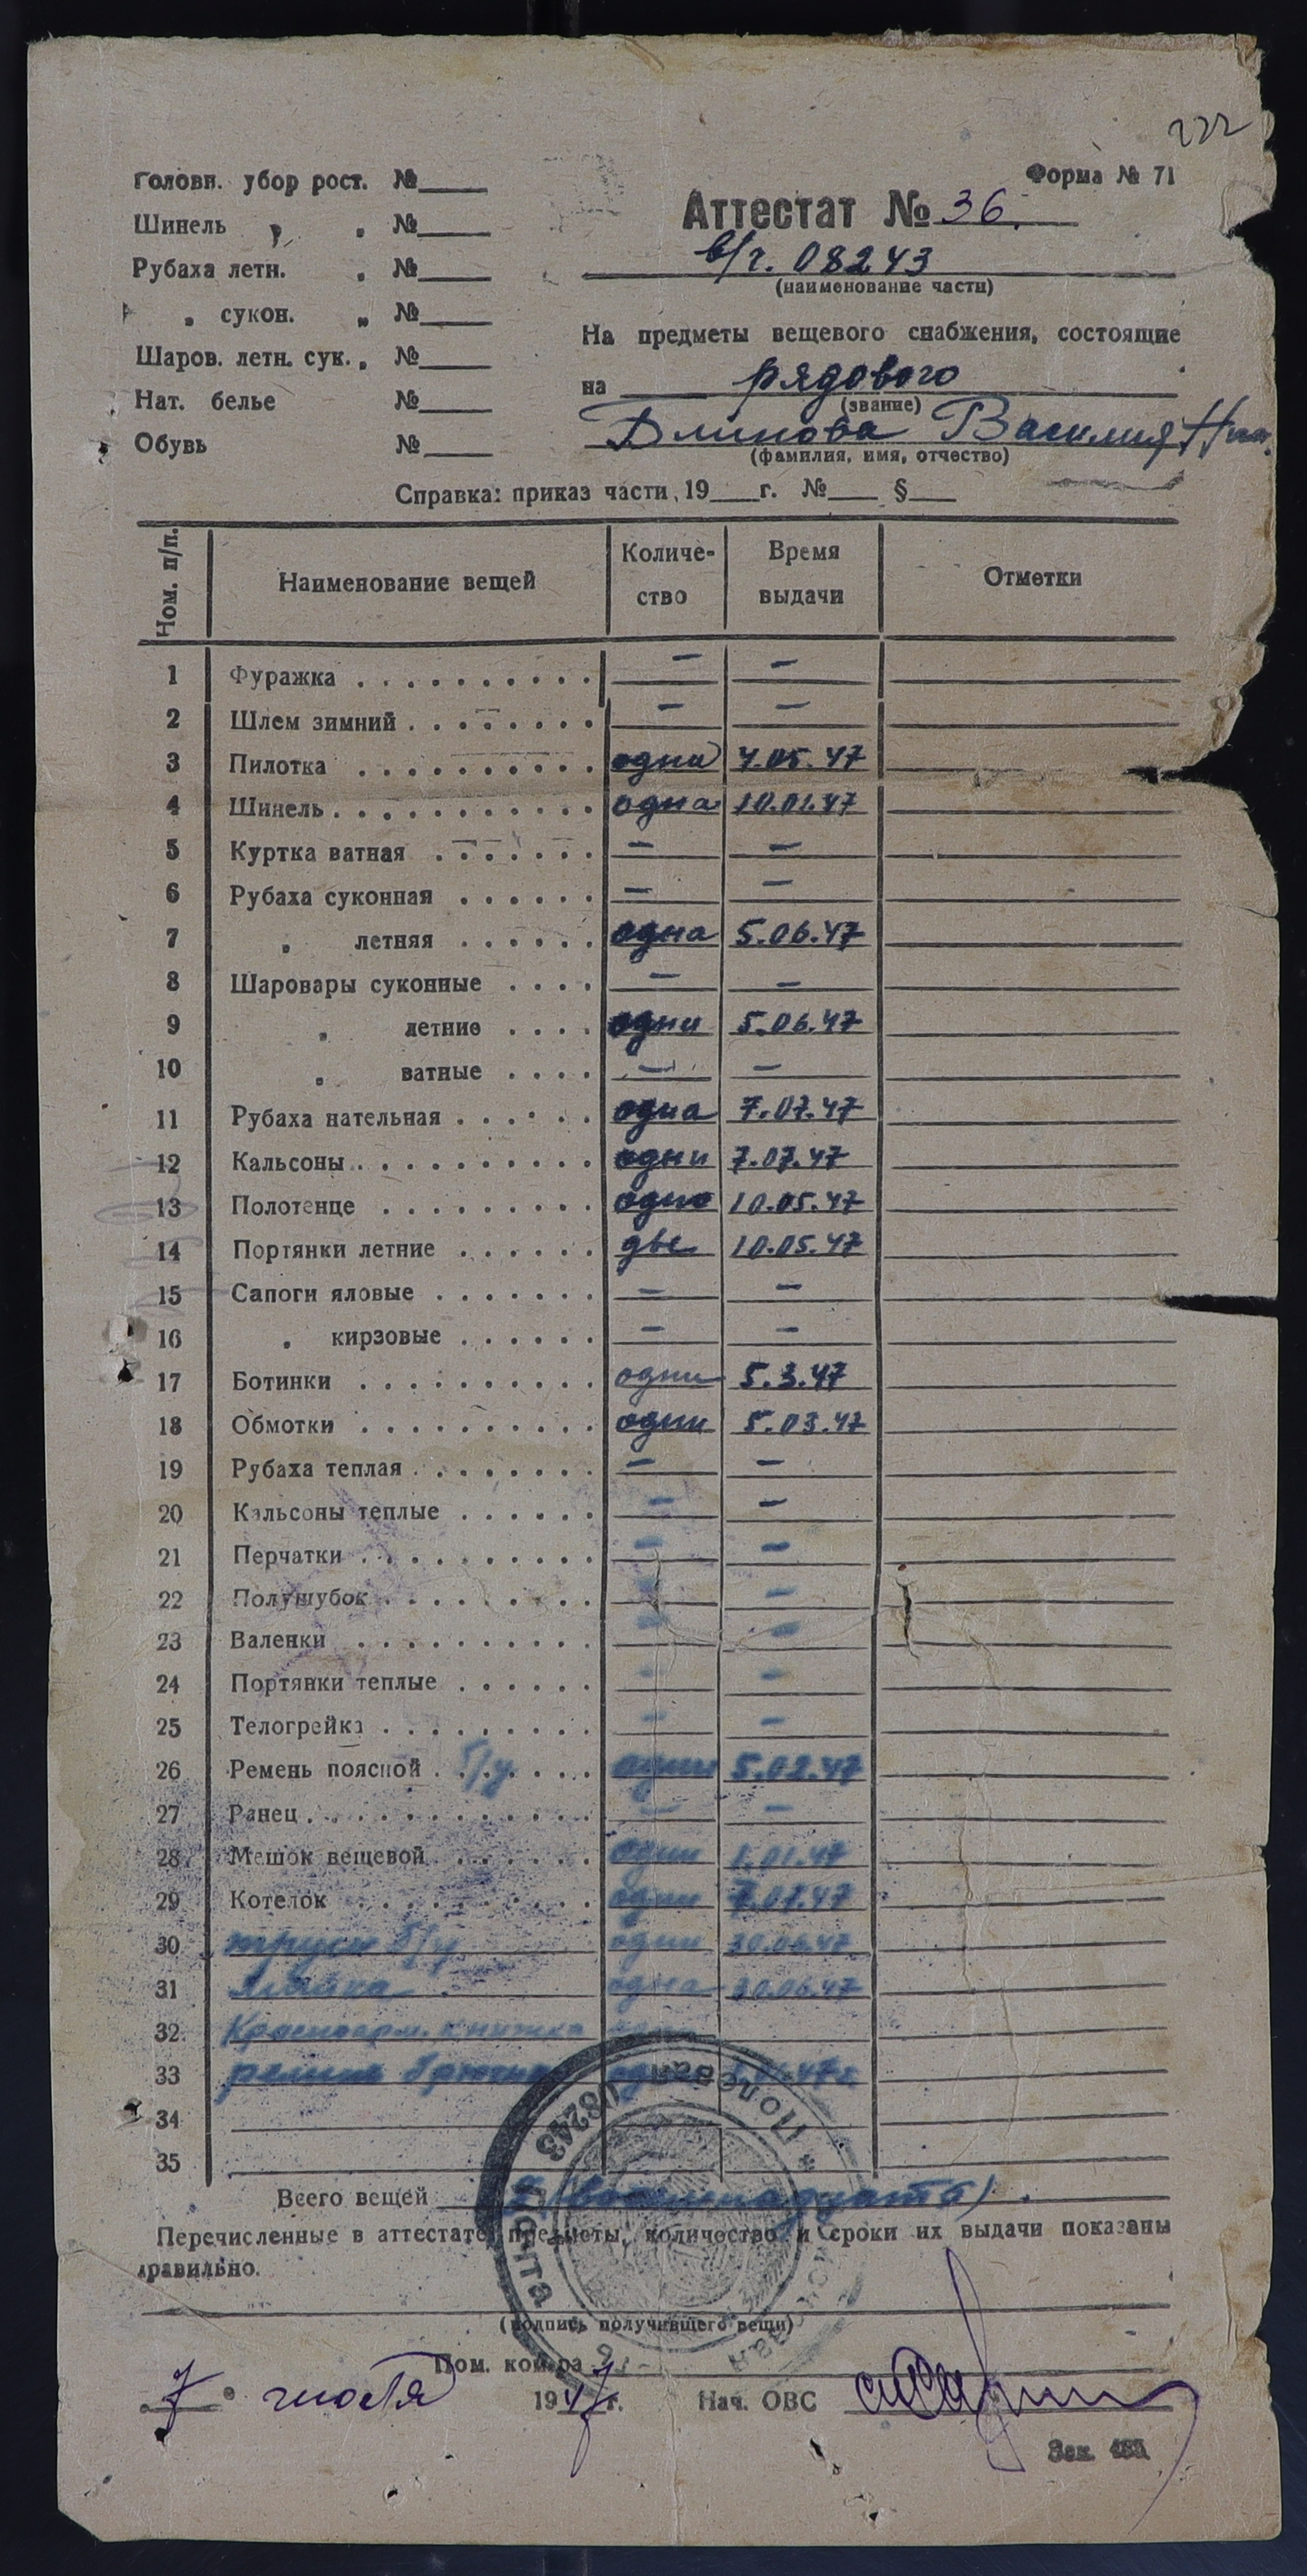 222
Форма № 71
Аттестат № 36.
в/ч. 08243
(наименование части)
Головн. убор рост. №
Шинель „ „ №
Рубаха летн. „ №
„ сукон. „ №
Шаров. летн. сук. „ №
Нат. белье №
Обувь №
На предметы вещевого снабжения, состоящие
на рядового
(звание)
Блинова Василия Ник.
(фамилия, имя, отчество)
Справка: приказ части, 19 г. № §
Ном. п/п. Наименование вещей Количе-ство Время выдачи Отметки
1 Фуражка — —
2 Шлем зимний — —
3 Пилотка одна 4.05.47
4 Шинель одна 10.01.47
5 Куртка ватная — —
6 Рубаха суконная — —
7 „ летняя одна 5.06.47
8 Шаровары суконные — —
9 „ летние одни 5.06.47
10 „ ватные — —
11 Рубаха нательная одна 7.07.47
12 Кальсоны одни 7.07.47
13 Полотенце одно 10.05.47
14 Портянки летние две 10.05.47
15 Сапоги яловые — —
16 „ кирзовые — —
17 Ботинки одни 5.3.47
18 Обмотки одни 5.03.47
19 Рубаха теплая — —
20 Кальсоны теплые — —
21 Перчатки — —
22 Полушубок — —
23 Валенки — —
24 Портянки теплые — —
25 Телогрейка — —
26 Ремень поясной б/у один 5.02.47
27 Ранец — —
28 Мешок вещевой один 1.01.47
29 Котелок один 7.07.47
30 трусы б/у одни 30.06.47
31 майка одна 30.06.47
32 Красноарм. книжка
33 ремень брючн
34
35
Всего вещей (восемнадцать).
Перечисленные в аттестате предметы, количество и сроки их выдачи показаны
правильно.
(подпись получившего вещи)
Пом. ком-ра
7 " июля 1947 г. Нач. ОВС
Зак. 485
Полевая почта 08243